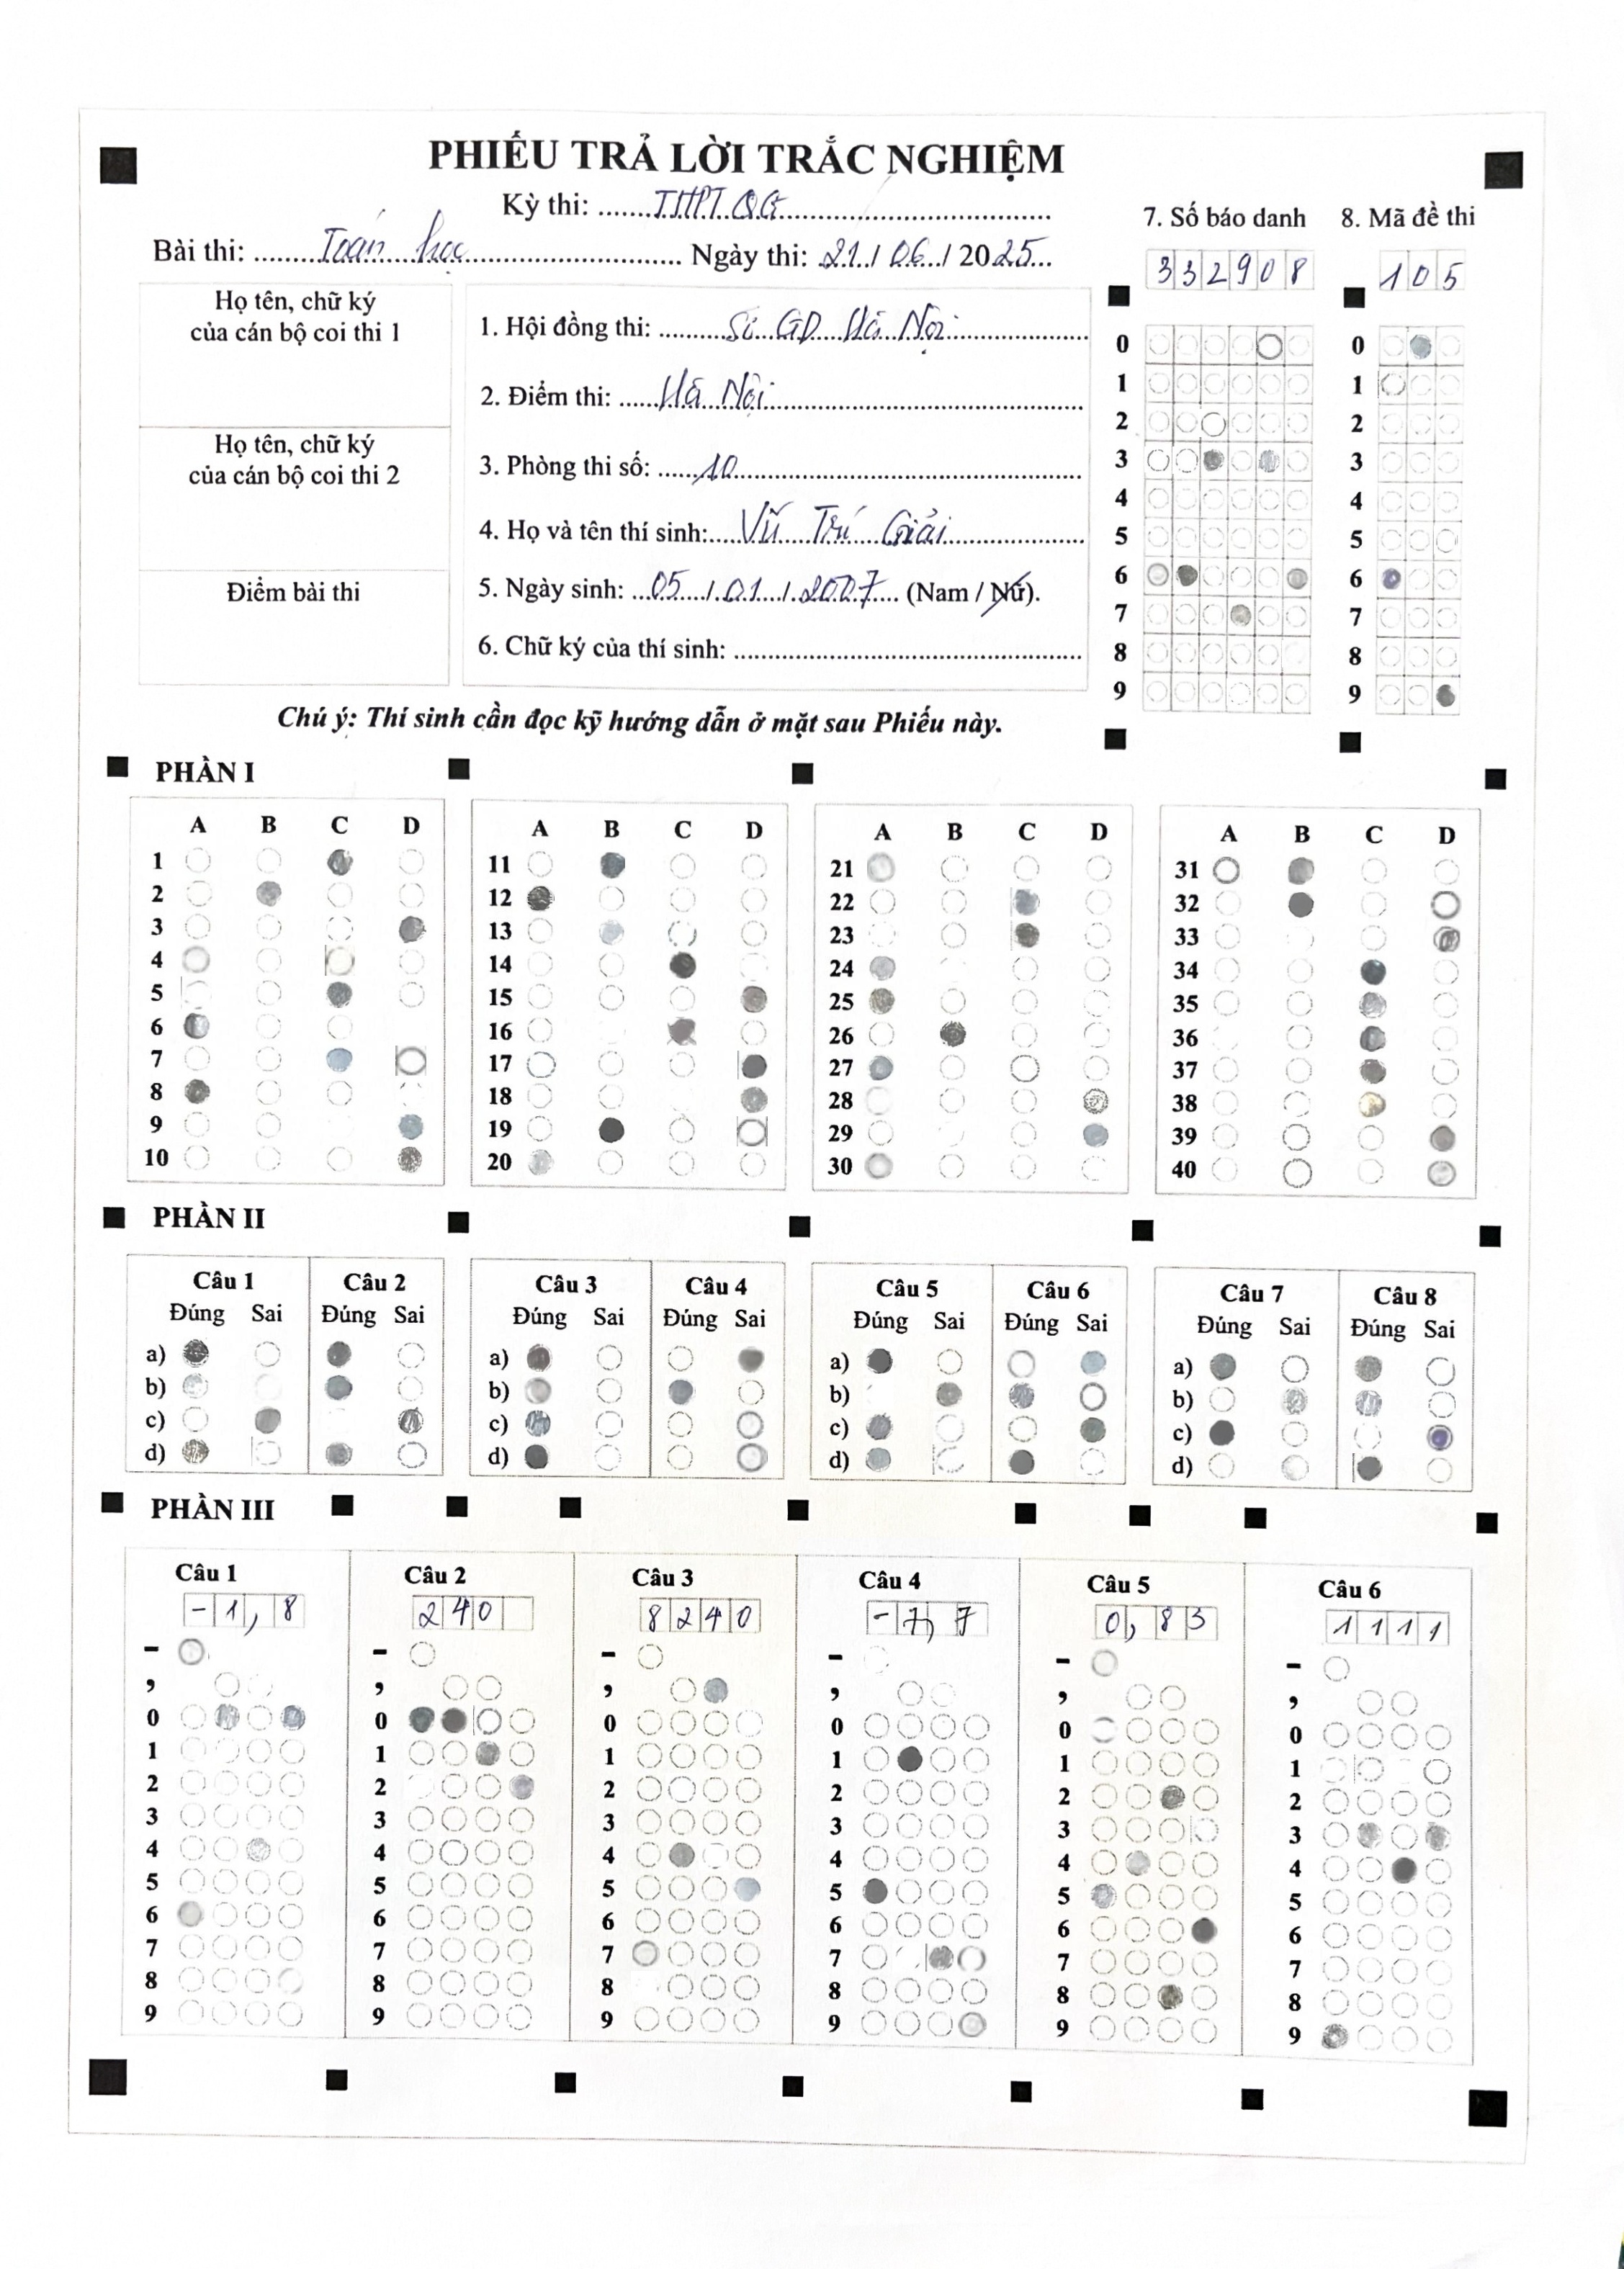 PHIẾU TRẢ LỜI TRẮC NGHIỆM
Kỳ thi: THPT QG
Bài thi: Toán học Ngày thi: 21 / 06 / 2025
Họ tên, chữ ký
của cán bộ coi thi 1
Họ tên, chữ ký
của cán bộ coi thi 2
Điểm bài thi
1. Hội đồng thi: Sở GD Hà Nội
2. Điểm thi: Hà Nội
3. Phòng thi số: 10
4. Họ và tên thí sinh: Vũ Trí Giải
5. Ngày sinh: 05 / 01 / 2007 (Nam / Nữ).
6. Chữ ký của thí sinh:
7. Số báo danh
332908
0
1
2
3
4
5
6
7
8
9
8. Mã đề thi
105
0
1
2
3
4
5
6
7
8
9
Chú ý: Thí sinh cần đọc kỹ hướng dẫn ở mặt sau Phiếu này.
PHẦN I
A B C D
1
2
3
4
5
6
7
8
9
10
A B C D
11
12
13
14
15
16
17
18
19
20
A B C D
21
22
23
24
25
26
27
28
29
30
A B C D
31
32
33
34
35
36
37
38
39
40
PHẦN II
Câu 1 Câu 2
Đúng Sai Đúng Sai
a)
b)
c)
d)
Câu 3 Câu 4
Đúng Sai Đúng Sai
a)
b)
c)
d)
Câu 5 Câu 6
Đúng Sai Đúng Sai
a)
b)
c)
d)
Câu 7 Câu 8
Đúng Sai Đúng Sai
a)
b)
c)
d)
PHẦN III
Câu 1
-1,8
-
,
0
1
2
3
4
5
6
7
8
9
Câu 2
240
-
,
0
1
2
3
4
5
6
7
8
9
Câu 3
8240
-
,
0
1
2
3
4
5
6
7
8
9
Câu 4
-7,7
-
,
0
1
2
3
4
5
6
7
8
9
Câu 5
0,83
-
,
0
1
2
3
4
5
6
7
8
9
Câu 6
1111
-
,
0
1
2
3
4
5
6
7
8
9